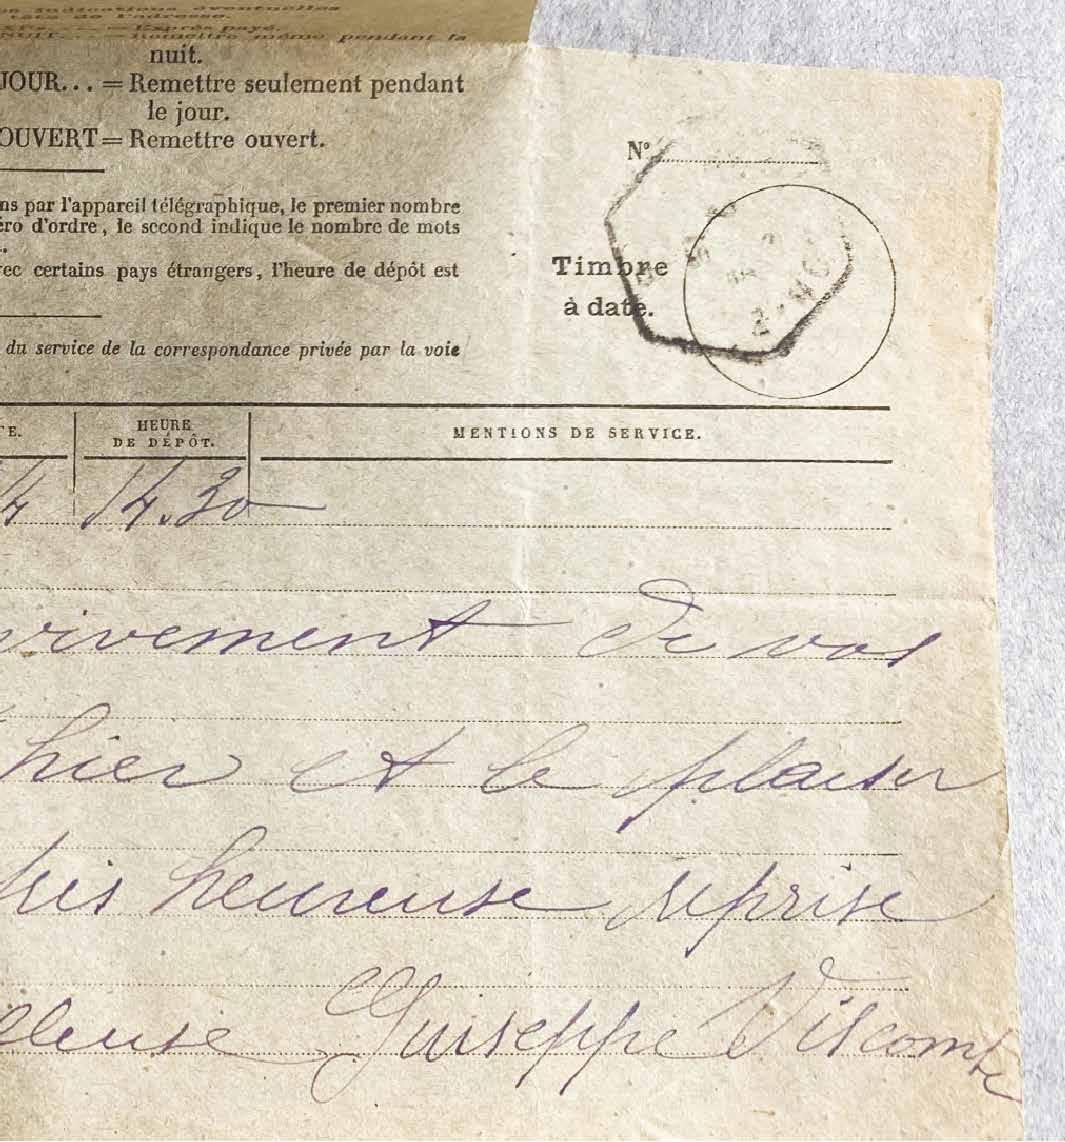 nuit.
JOUR... = Remettre seulement pendant
le jour.
OUVERT = Remettre ouvert.
ns par l'appareil télégraphique, le premier nombre
ro d'ordre, le second indique le nombre de mots
ec certains pays étrangers, l'heure de dépôt est
du service de la correspondance privée par la voie
N°
Timbre
à date.
TE.
HEURE
DE DÉPÔT.
MENTIONS DE SERVICE.
4 14.30
vivement de vos
hier et le plaisir
très heureuse reprise
Guiseppe Viscomte